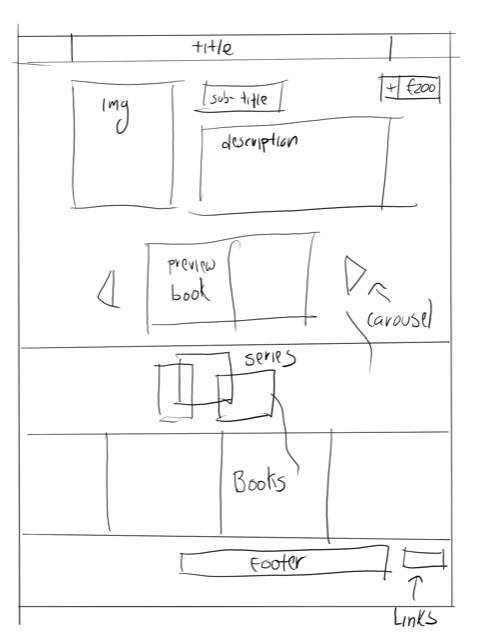 title
img
sub-title
+ £200
description
preview
book
carousel
series
Books
Footer
Links